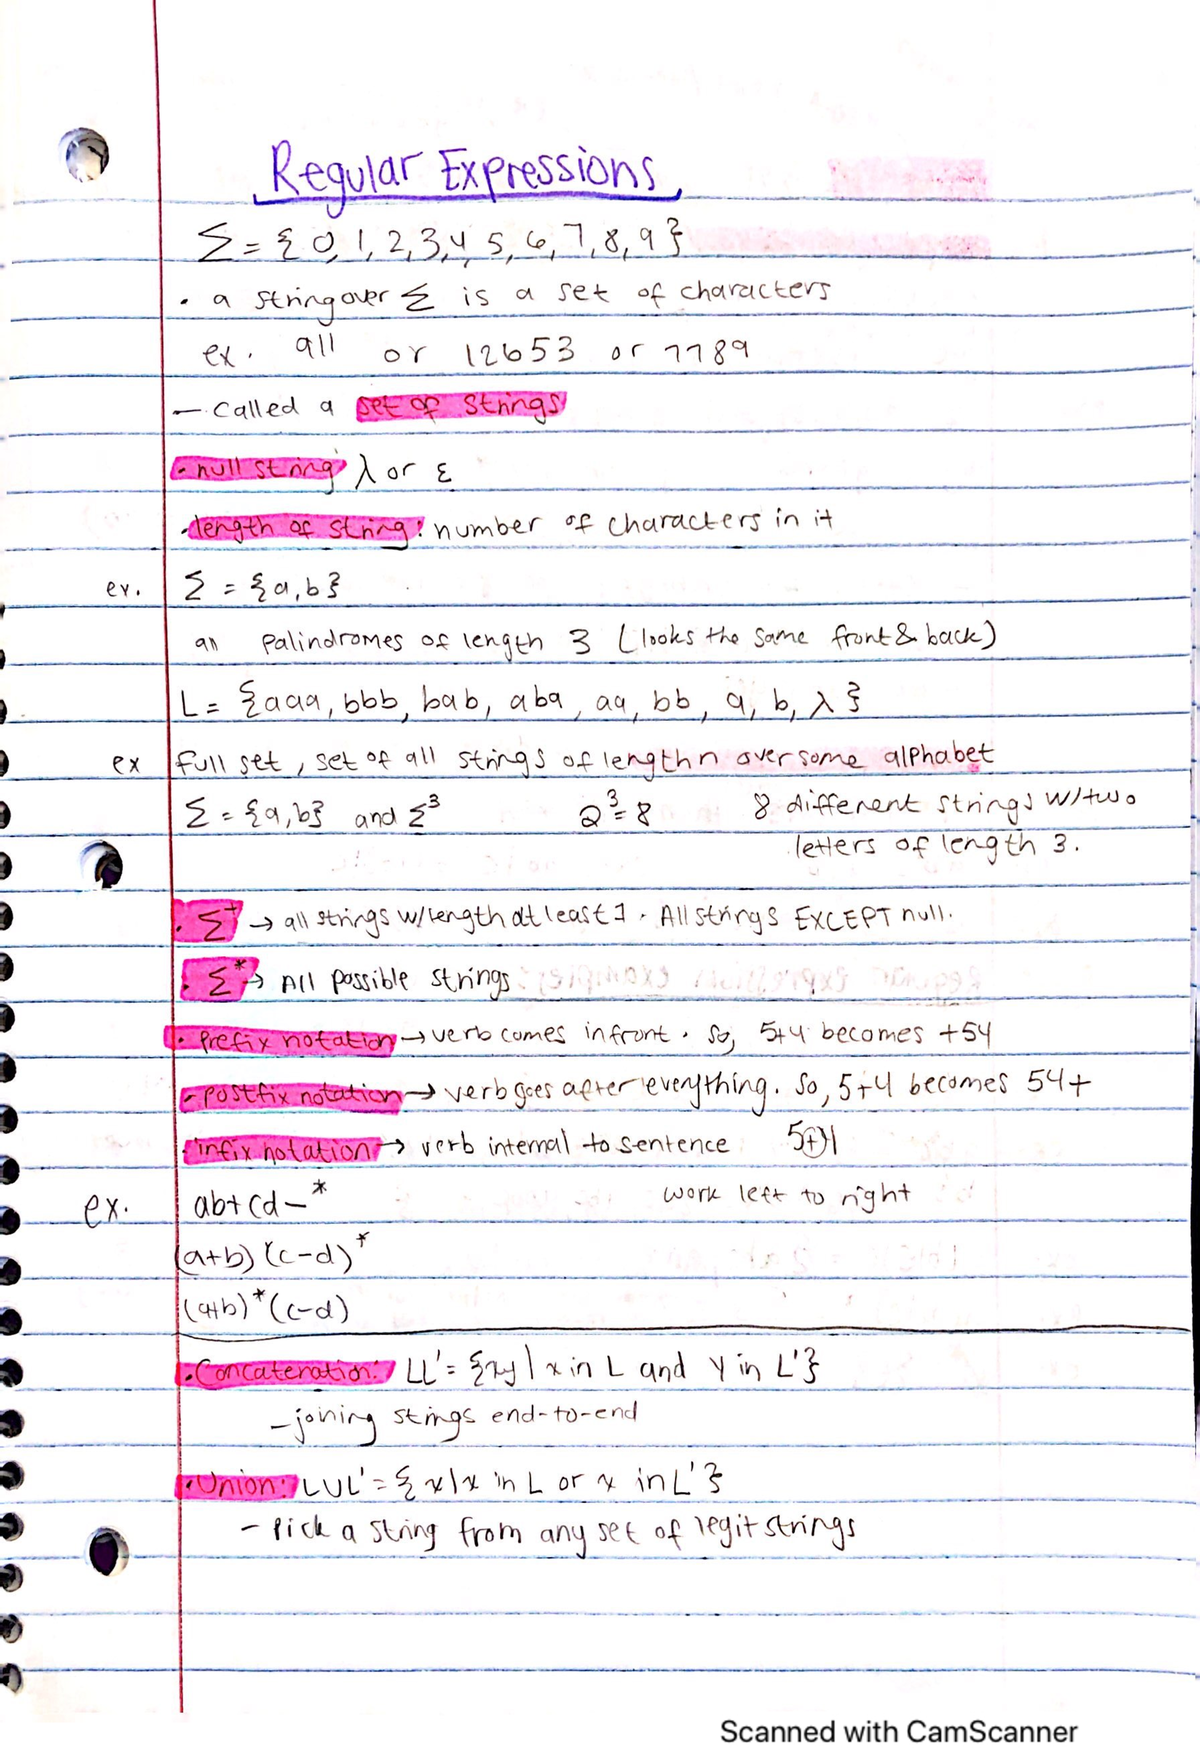 Regular Expressions
Σ = {0, 1, 2, 3, 4, 5, 6, 7, 8, 9}
• a string over Σ is a set of characters
ex. 911 or 12653 or 7789
– called a set of strings
• null string λ or ε
• length of string: number of characters in it
ex. Σ = {a, b}
all palindromes of length 3 (looks the same front & back)
L = {aaa, bbb, bab, aba, aa, bb, a, b, λ}
ex full set, set of all strings of length n over some alphabet
Σ = {a, b} and Σ³ 2³ = 8 8 different strings w/ two
letters of length 3.
• Σ⁺ → all strings w/ length at least 1. All strings EXCEPT null.
• Σ* → All possible strings
• prefix notation → verb comes in front. So, 5+4 becomes +54
• postfix notation → verb goes after everything. So, 5+4 becomes 54+
• infix notation → verb internal to sentence 5+4
ex. ab+cd-* work left to right
(a+b)(c-d)*
(a+b)*(c-d)
• Concateration: LL' = {xy | x in L and y in L'}
– joining stings end-to-end
• Union: LUL' = {x | x in L or x in L'}
– Pick a string from any set of legit strings
Scanned with CamScanner